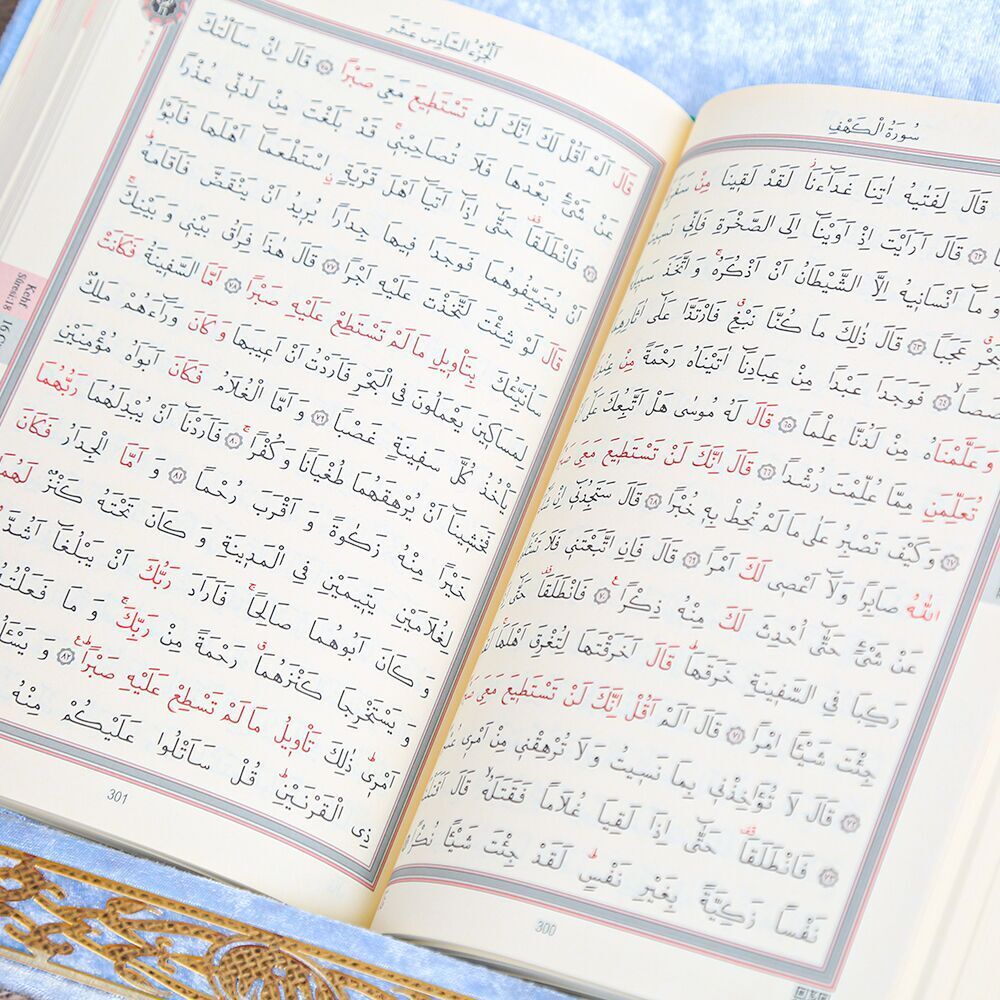 سُورَةُ الْكَهْفِ
قَالَ لِفَتٰيهُ اٰتِنَا غَدَٓاءَنَاۘ لَقَدْ لَقٖينَا مِنْ
﴿٦٢﴾ قَالَ اَرَاَيْتَ اِذْ اَوَيْنَٓا اِلَى الصَّخْرَةِ فَاِنّٖي
وَمَٓا اَنْسَانٖيهُ اِلَّا الشَّيْطَانُ اَنْ اَذْكُرَهُۚ وَاتَّخَذَ
عَجَبًا ﴿٦٣﴾ قَالَ ذٰلِكَ مَا كُنَّا نَبْغِۗ فَارْتَدَّا عَلٰٓى
﴿٦٤﴾ فَوَجَدَا عَبْدًا مِنْ عِبَادِنَٓا اٰتَيْنَاهُ رَحْمَةً مِنْ
وَعَلَّمْنَاهُ مِنْ لَدُنَّا عِلْمًا ﴿٦٥﴾ قَالَ لَهُ مُوسٰى هَلْ اَتَّبِعُكَ عَلٰٓى
تُعَلِّمَنِ مِمَّا عُلِّمْتَ رُشْدًا ﴿٦٦﴾ قَالَ اِنَّكَ لَنْ تَسْتَطٖيعَ مَعِيَ
﴿٦٧﴾ وَكَيْفَ تَصْبِرُ عَلٰى مَا لَمْ تُحِطْ بِهٖ خُبْرًا ﴿٦٨﴾ قَالَ سَتَجِدُنٖٓي اِنْ
اللّٰهُ صَابِرًا وَلَٓا اَعْصٖي لَكَ اَمْرًا ﴿٦٩﴾ قَالَ فَاِنِ اتَّبَعْتَنٖي فَلَا
عَنْ شَيْءٍ حَتّٰٓى اُحْدِثَ لَكَ مِنْهُ ذِكْرًاࣖ ﴿٧٠﴾ فَانْطَلَقَا۠
رَكِبَا فِي السَّفٖينَةِ خَرَقَهَاۜ قَالَ اَخَرَقْتَهَا لِتُغْرِقَ اَهْلَهَاۚ
جِئْتَ شَيْـًٔا اِمْرًا ﴿٧١﴾ قَالَ اَلَمْ اَقُلْ اِنَّكَ لَنْ تَسْتَطٖيعَ مَعِيَ
﴿٧٢﴾ قَالَ لَا تُؤَاخِذْنٖي بِمَا نَسٖيتُ وَلَا تُرْهِقْنٖي مِنْ اَمْرٖي
﴿٧٣﴾ فَانْطَلَقَا۠ حَتّٰٓى اِذَا لَقِيَا غُلَامًا فَقَتَلَهُۙ قَالَ
نَفْسًا زَكِيَّةً بِغَيْرِ نَفْسٍۜ لَقَدْ جِئْتَ شَيْـًٔا
300
اَلْجُزْءُ السَّادِسَ عَشَرَ
قَالَ اَلَمْ اَقُلْ لَكَ اِنَّكَ لَنْ تَسْتَطٖيعَ مَعِيَ صَبْرًا ﴿٧٥﴾ قَالَ اِنْ سَاَلْتُكَ
عَنْ شَيْءٍ بَعْدَهَا فَلَا تُصَاحِبْنٖيۚ قَدْ بَلَغْتَ مِنْ لَدُنّٖي عُذْرًا
﴿٧٦﴾ فَانْطَلَقَا۠ حَتّٰٓى اِذَٓا اَتَيَٓا اَهْلَ قَرْيَةٍۨ اسْتَطْعَمَٓا اَهْلَهَا فَاَبَوْا
اَنْ يُضَيِّفُوهُمَا فَوَجَدَا فٖيهَا جِدَارًا يُرٖيدُ اَنْ يَنْقَضَّ فَاَقَامَهُۜ
قَالَ لَوْ شِئْتَ لَتَّخَذْتَ عَلَيْهِ اَجْرًا ﴿٧٧﴾ قَالَ هٰذَا فِرَاقُ بَيْنٖي وَبَيْنِكَۚ
سَاُنَبِّئُكَ بِتَأْوٖيلِ مَا لَمْ تَسْتَطِعْ عَلَيْهِ صَبْرًا ﴿٧٨﴾ اَمَّا السَّفٖينَةُ فَكَانَتْ
لِمَسَاكٖينَ يَعْمَلُونَ فِي الْبَحْرِ فَاَرَدْتُ اَنْ اَعٖيبَهَا وَكَانَ وَرَٓاءَهُمْ مَلِكٌ
يَأْخُذُ كُلَّ سَفٖينَةٍ غَصْبًا ﴿٧٩﴾ وَاَمَّا الْغُلَامُ فَكَانَ اَبَوَاهُ مُؤْمِنَيْنِ
فَخَشٖينَٓا اَنْ يُرْهِقَهُمَا طُغْيَانًا وَكُفْرًاۚ ﴿٨٠﴾ فَاَرَدْنَٓا اَنْ يُبْدِلَهُمَا رَبُّهُمَا
خَيْرًا مِنْهُ زَكٰوةً وَاَقْرَبَ رُحْمًا ﴿٨١﴾ وَاَمَّا الْجِدَارُ فَكَانَ
لِغُلَامَيْنِ يَتٖيمَيْنِ فِي الْمَدٖينَةِ وَكَانَ تَحْتَهُ كَنْزٌ لَهُمَا
وَكَانَ اَبُوهُمَا صَالِحًاۚ فَاَرَادَ رَبُّكَ اَنْ يَبْلُغَٓا اَشُدَّ
وَيَسْتَخْرِجَا كَنْزَهُمَاۗ رَحْمَةً مِنْ رَبِّكَۚ وَمَا فَعَلْتُهُ
اَمْرٖيۜ ذٰلِكَ تَأْوٖيلُ مَا لَمْ تَسْطِعْ عَلَيْهِ صَبْرًاۜࣖ ﴿٨٢﴾
ذِي الْقَرْنَيْنِۜ قُلْ سَاَتْلُوا عَلَيْكُمْ مِنْهُ
301
Kehf
Sûresi:18